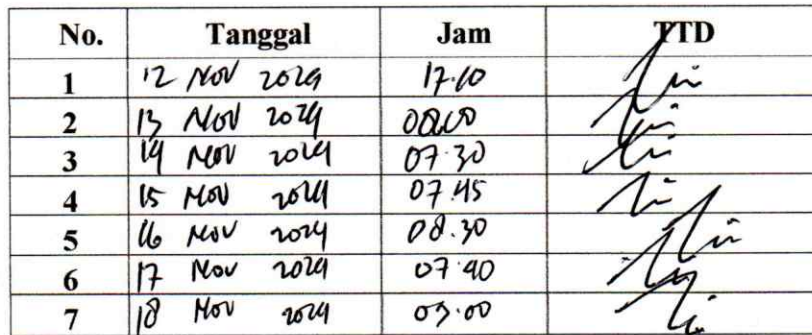 No. Tanggal Jam TTD
1 12 Nov 2024 17.10
2 13 Nov 2024 08.00
3 14 Nov 2024 07.30
4 15 Nov 2024 07.45
5 16 Nov 2024 08.30
6 17 Nov 2024 07.40
7 18 Nov 2024